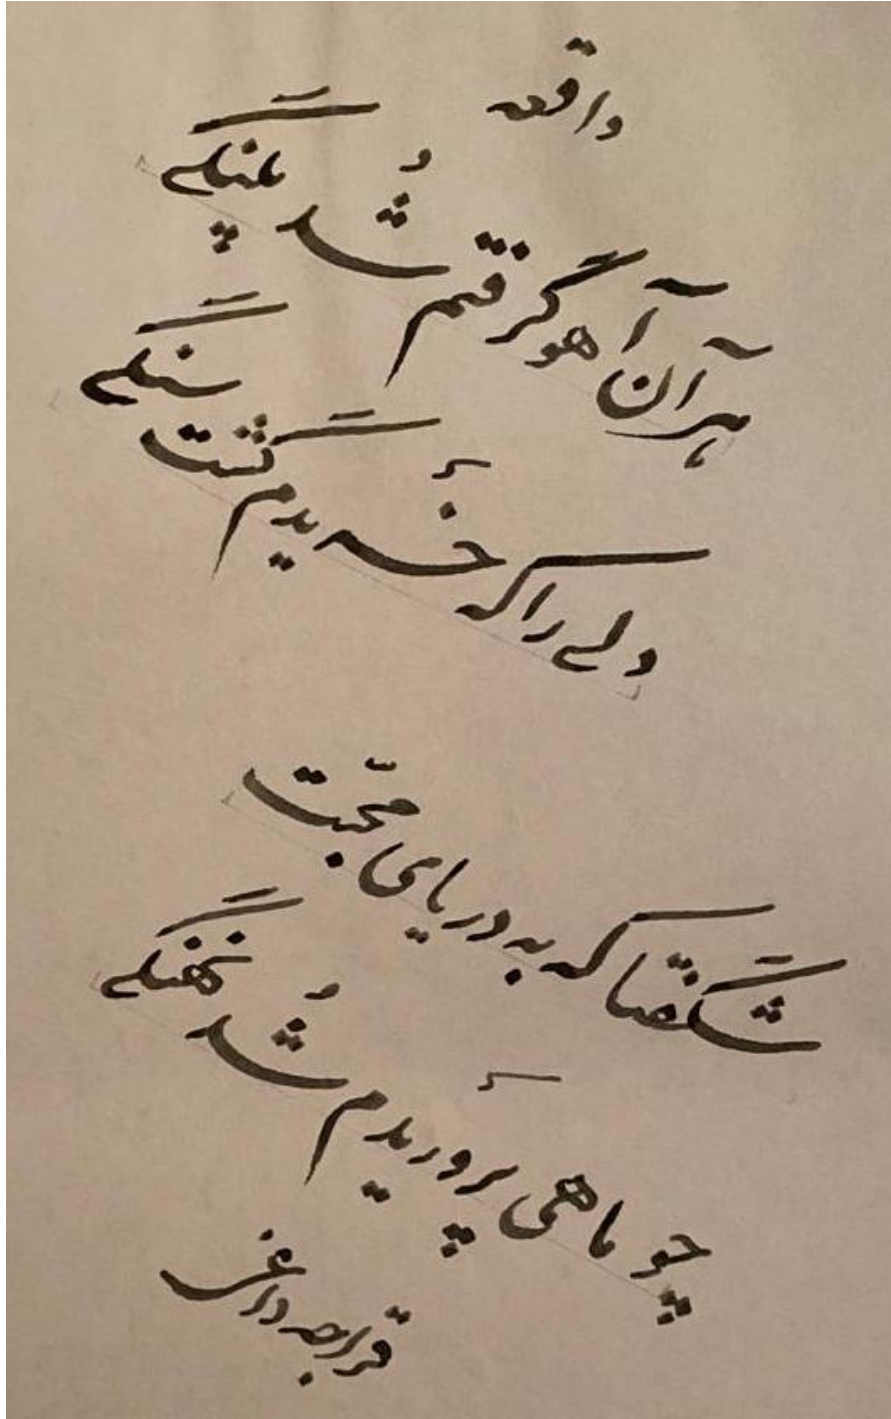 واقعه
هر آن آهو گرفتم شُد پلنگی
دلی را که خریدم گشت سنگی
شگفتا که به دریای محبّت
چو ماهی پروریدم شُد نهنگی
قراجه داغی